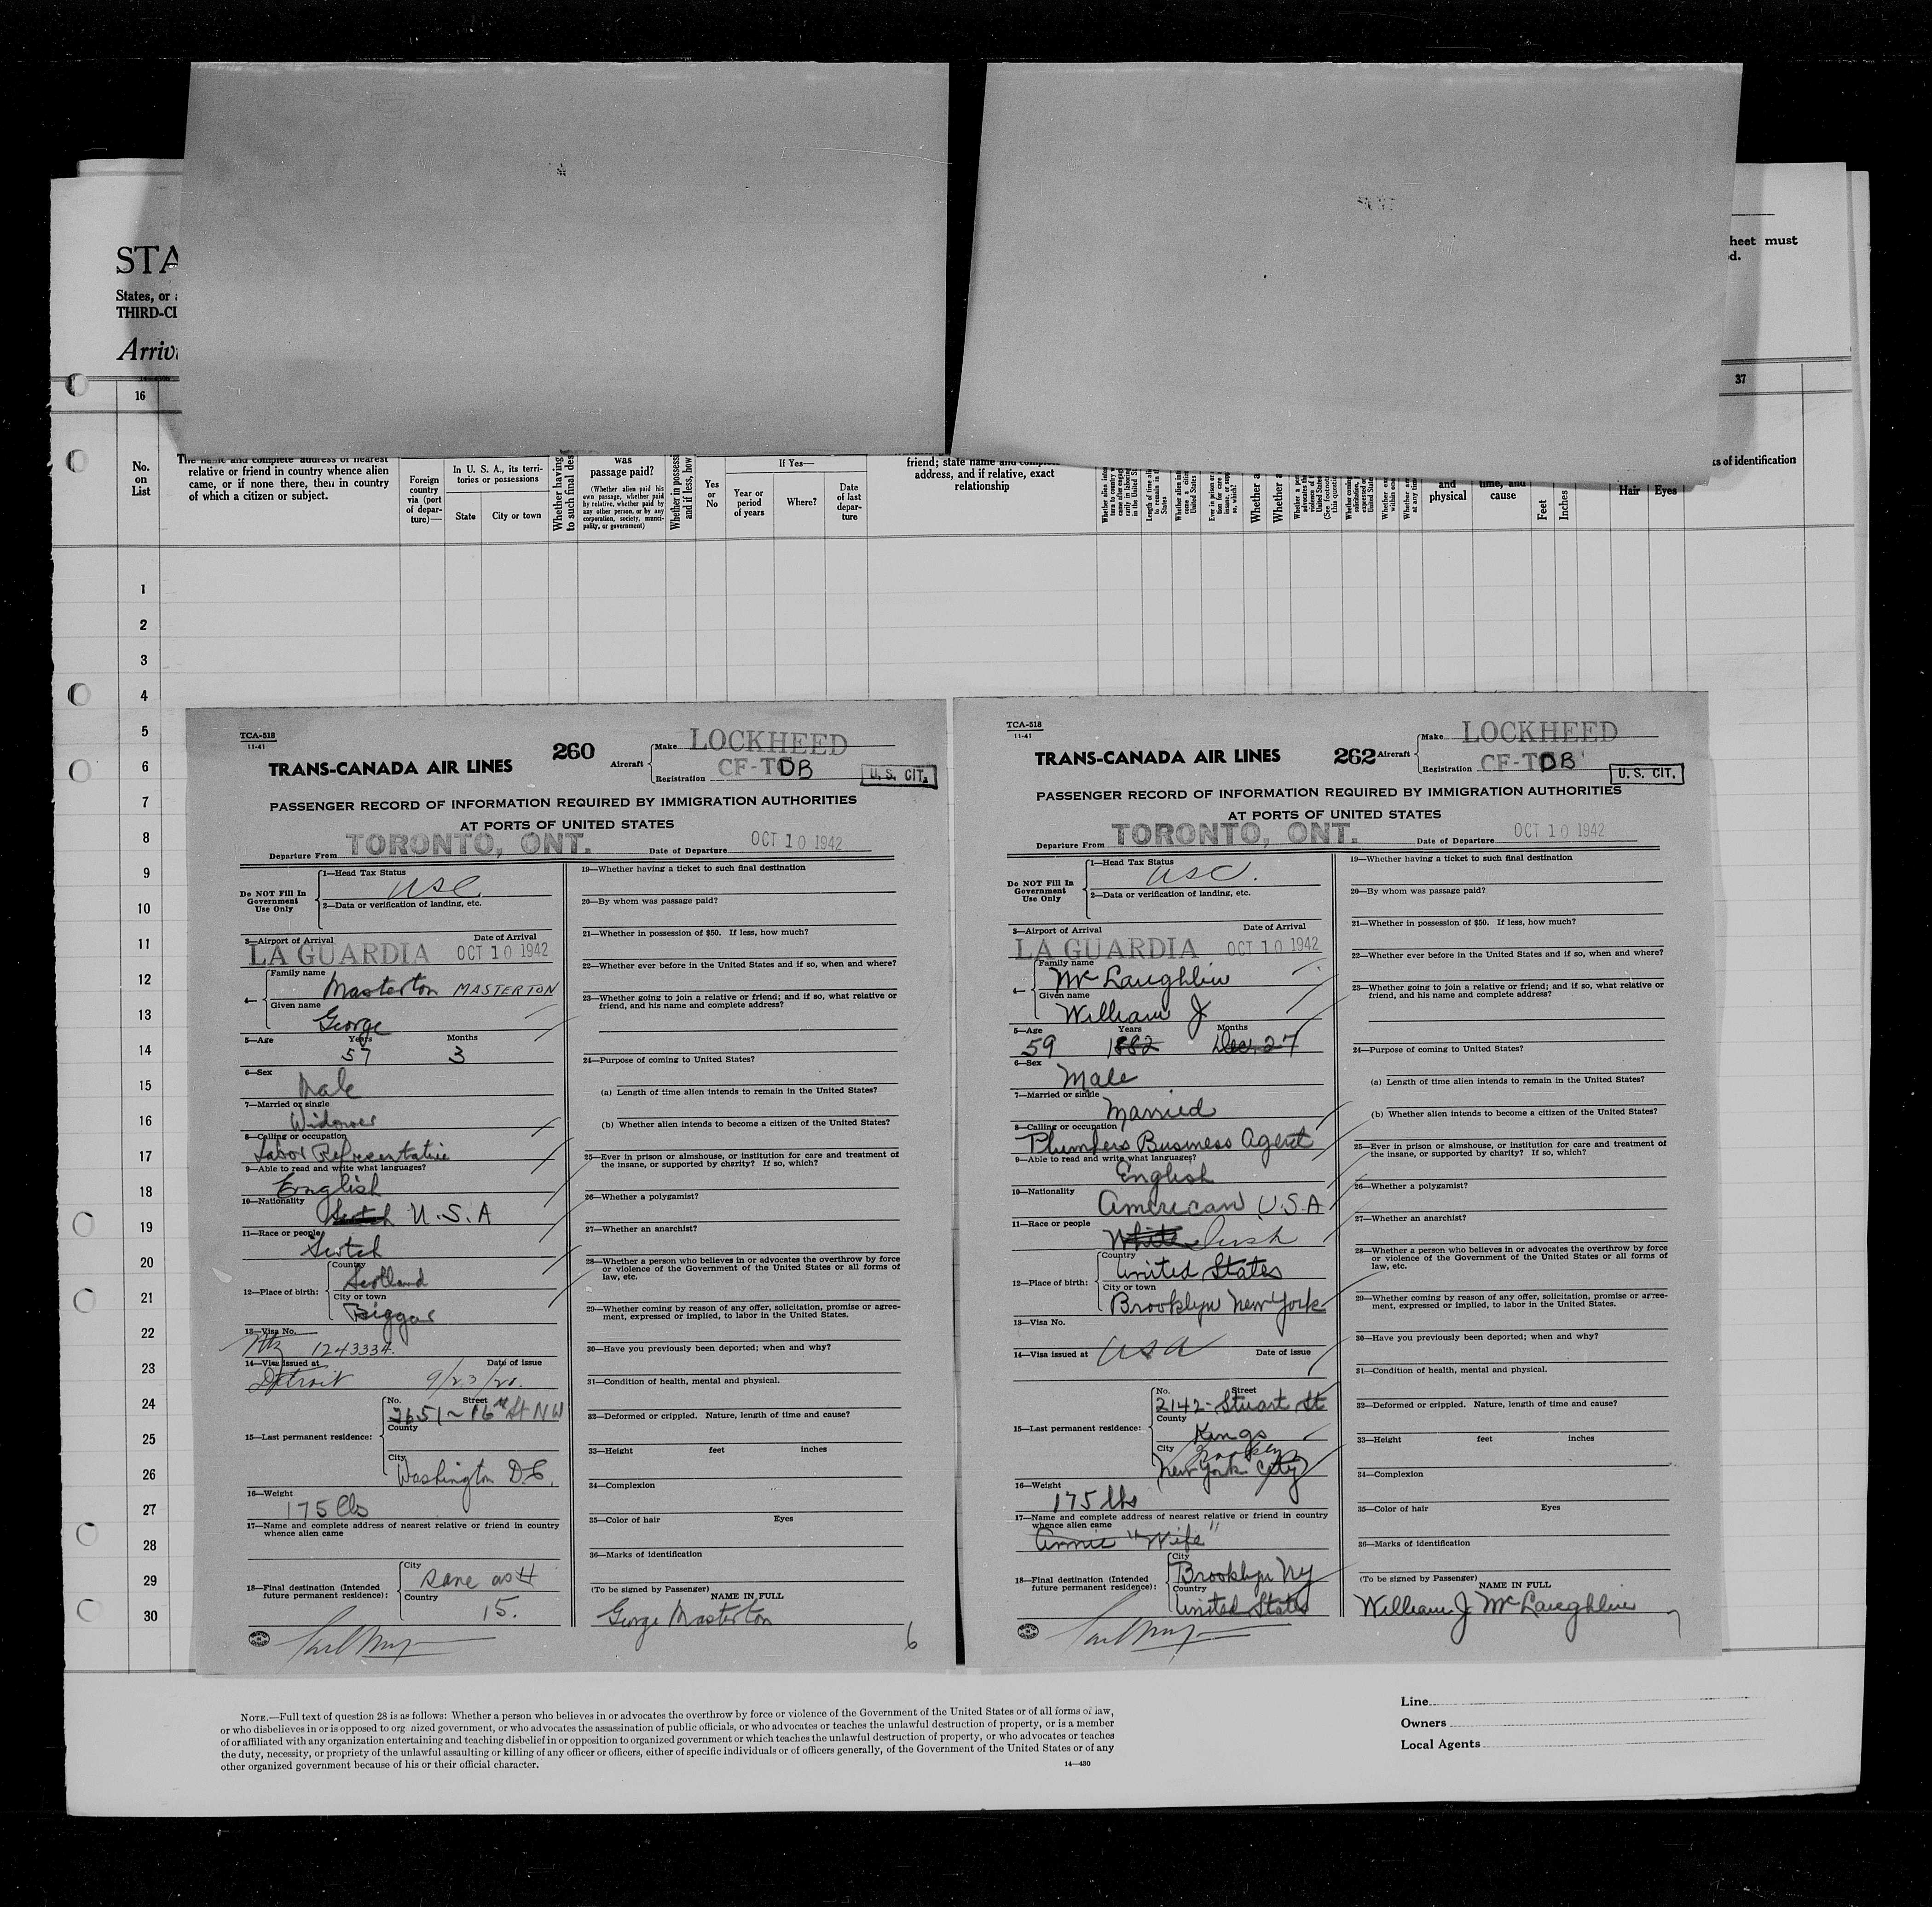 STA
States, or
THIRD-CL
Arriv
heet must
d.
16
37
No.
on
List
The name and complete address of nearest
relative or friend in country whence alien
came, or if none there, then in country
of which a citizen or subject.
Foreign
country
via (port
of depar-
ture)—
In U. S. A., its terri-
tories or possessions
State
City or town
Whether having
to such final des
was
passage paid?
(Whether alien paid his
own passage, whether paid
by relative, whether paid by
any other person, or by any
corporation, society, munici-
pality, or government)
Whether in possessi
and if less, how
Yes
or
No
If Yes—
Year or
period
of years
Where?
Date
of last
depar-
ture
friend; state name and complete
address, and if relative, exact
relationship
Whether a
Whether a
and
physical
time, and
cause
Feet
Inches
Hair
Eyes
ks of identification
1
2
3
4
5
6
7
8
9
10
11
12
13
14
15
16
17
18
19
20
21
22
23
24
25
26
27
28
29
30
TCA-518
11-41
TRANS-CANADA AIR LINES
260
Aircraft
Make LOCKHEED
Registration CF-TDB
U. S. CIT.
PASSENGER RECORD OF INFORMATION REQUIRED BY IMMIGRATION AUTHORITIES
AT PORTS OF UNITED STATES
Departure From TORONTO, ONT.
Date of Departure OCT 10 1942
Do NOT Fill In
Government
Use Only
1—Head Tax Status
USC
2—Data or verification of landing, etc.
3—Airport of Arrival
Date of Arrival
LA GUARDIA OCT 10 1942
4—
Family name
Masterton MASTERTON
Given name
George
5—Age
Years
Months
57
3
6—Sex
Male
7—Married or single
Widower
8—Calling or occupation
Labor Representative
9—Able to read and write what languages?
English
10—Nationality
Scotch U.S.A
11—Race or people
Scotch
12—Place of birth:
Country
Scotland
City or town
Biggar
13—Visa No.
Ntz 1243334.
14—Visa issued at
Date of issue
Detroit 9/23/20.
15—Last permanent residence:
No.
Street
2651~16th St NW
County
City
Washington D.C.
16—Weight
175 lbs
17—Name and complete address of nearest relative or friend in country
whence alien came
18—Final destination (Intended
future permanent residence):
City
Same as #
Country
15.
19—Whether having a ticket to such final destination
20—By whom was passage paid?
21—Whether in possession of $50. If less, how much?
22—Whether ever before in the United States and if so, when and where?
23—Whether going to join a relative or friend; and if so, what relative or
friend, and his name and complete address?
24—Purpose of coming to United States?
(a) Length of time alien intends to remain in the United States?
(b) Whether alien intends to become a citizen of the United States?
25—Ever in prison or almshouse, or institution for care and treatment of
the insane, or supported by charity? If so, which?
26—Whether a polygamist?
27—Whether an anarchist?
28—Whether a person who believes in or advocates the overthrow by force
or violence of the Government of the United States or all forms of
law, etc.
29—Whether coming by reason of any offer, solicitation, promise or agree-
ment, expressed or implied, to labor in the United States.
30—Have you previously been deported; when and why?
31—Condition of health, mental and physical.
32—Deformed or crippled. Nature, length of time and cause?
33—Height feet inches
34—Complexion
35—Color of hair Eyes
36—Marks of identification
(To be signed by Passenger)
NAME IN FULL
George Masterton
6
TCA-518
11-41
TRANS-CANADA AIR LINES
262
Aircraft
Make LOCKHEED
Registration CF-TDB
U. S. CIT.
PASSENGER RECORD OF INFORMATION REQUIRED BY IMMIGRATION AUTHORITIES
AT PORTS OF UNITED STATES
Departure From TORONTO, ONT.
Date of Departure OCT 10 1942
Do NOT Fill In
Government
Use Only
1—Head Tax Status
USC.
2—Data or verification of landing, etc.
3—Airport of Arrival
Date of Arrival
LA GUARDIA OCT 10 1942
4—
Family name
McLaughlin
Given name
William J
5—Age
Years
Months
59 1882 Dec. 27
6—Sex
Male
7—Married or single
Married
8—Calling or occupation
Plumbers Business Agent
9—Able to read and write what languages?
English
10—Nationality
American U.S.A
11—Race or people
White Irish
12—Place of birth:
Country
United States
City or town
Brooklyn New York
13—Visa No.
14—Visa issued at
USA
Date of issue
15—Last permanent residence:
No.
Street
2142-Stuart St
County
Kings
City
Brooklyn
New York City
16—Weight
175 lbs
17—Name and complete address of nearest relative or friend in country
whence alien came
Annie "Wife"
18—Final destination (Intended
future permanent residence):
City
Brooklyn NY
Country
United States
19—Whether having a ticket to such final destination
20—By whom was passage paid?
21—Whether in possession of $50. If less, how much?
22—Whether ever before in the United States and if so, when and where?
23—Whether going to join a relative or friend; and if so, what relative or
friend, and his name and complete address?
24—Purpose of coming to United States?
(a) Length of time alien intends to remain in the United States?
(b) Whether alien intends to become a citizen of the United States?
25—Ever in prison or almshouse, or institution for care and treatment of
the insane, or supported by charity? If so, which?
26—Whether a polygamist?
27—Whether an anarchist?
28—Whether a person who believes in or advocates the overthrow by force
or violence of the Government of the United States or all forms of
law, etc.
29—Whether coming by reason of any offer, solicitation, promise or agree-
ment, expressed or implied, to labor in the United States.
30—Have you previously been deported; when and why?
31—Condition of health, mental and physical.
32—Deformed or crippled. Nature, length of time and cause?
33—Height feet inches
34—Complexion
35—Color of hair Eyes
36—Marks of identification
(To be signed by Passenger)
NAME IN FULL
William J McLaughlin
7
NOTE.—Full text of question 28 is as follows: Whether a person who believes in or advocates the overthrow by force or violence of the Government of the United States or of all forms of law,
or who disbelieves in or is opposed to org nized government, or who advocates the assassination of public officials, or who advocates or teaches the unlawful destruction of property, or is a member
of or affiliated with any organization entertaining and teaching disbelief in or opposition to organized government or which teaches the unlawful destruction of property, or who advocates or teaches
the duty, necessity, or propriety of the unlawful assaulting or killing of any officer or officers, either of specific individuals or of officers generally, of the Government of the United States or of any
other organized government because of his or their official character.
14—430
Line
Owners
Local Agents